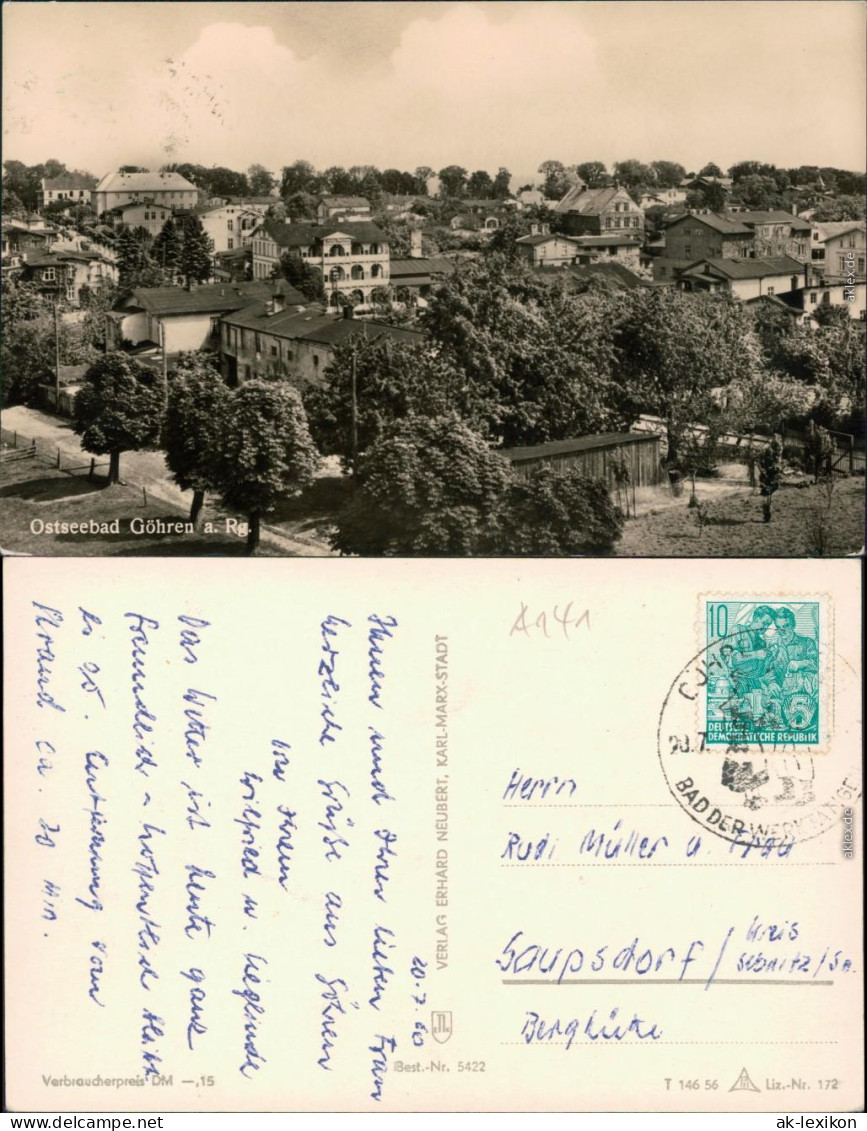 Ostseebad Göhren a. Rg.
20.7.60
Ihnen und Ihrer lieben Frau
herzliche Grüße aus Göhren
von Ihrem
Wilfried u. Sieglinde
Das Wetter ist heute ganz
freundlich – hoffentlich bleibt
es so. Entfernung vom
Strand ca. 20 Min.
Verbraucherpreis DM —,15
VERLAG ERHARD NEUBERT, KARL-MARX-STADT
Best.-Nr. 5422
A141
10
DEUTSCHE
DEMOKRATISCHE REPUBLIK
20.7.
BAD DER WERKTÄTIGEN
Herrn
Rudi Müller u. Frau
Saupsdorf / Kreis
Sebnitz/Sa.
Berghütte
T 146 56
Liz.-Nr. 172
aklexikon.de
aklexikon.de
www.ak-ansichtskarten.de
ak-lexikon